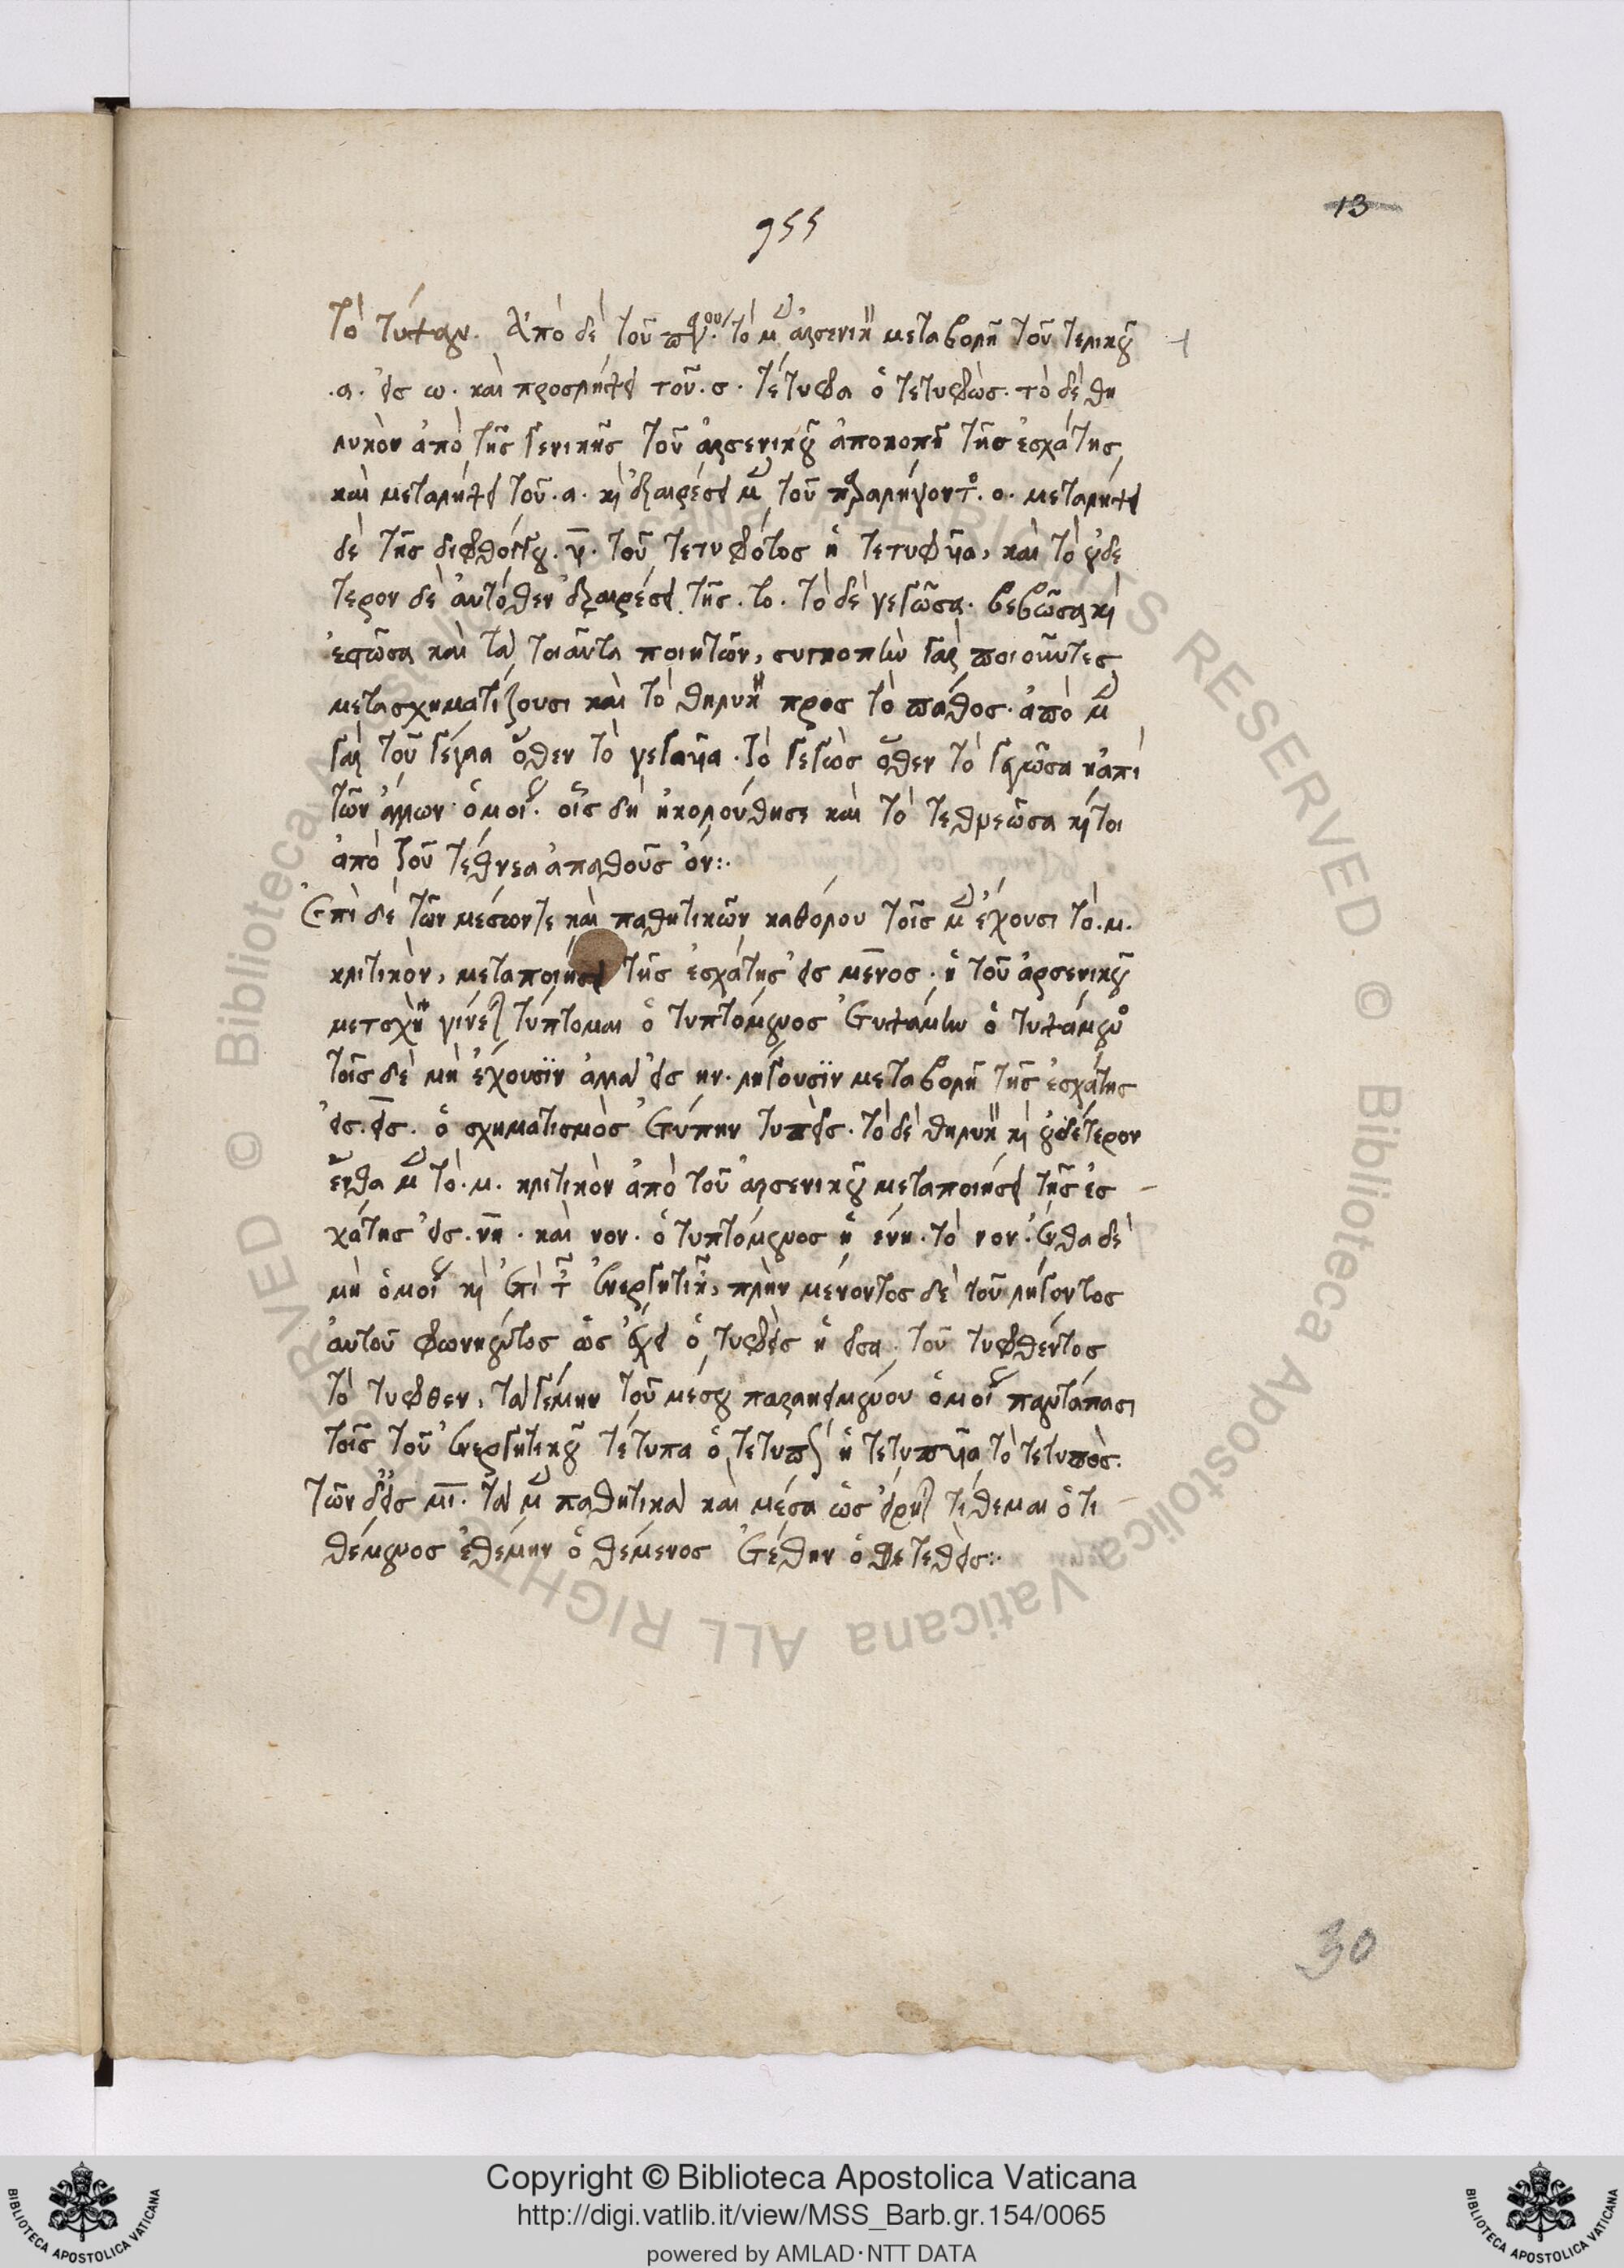 13
955
Τὸ τύψαν. Ἀπὸ δὲ τοῦ τὸ μὲν ἀρσενικὸν μεταβολῆ τοῦ τελικοῦ
.α. εἰς ω. καὶ προσλήψει τοῦ .σ. τέτυφα ὁ τετυφώς. τὸ δὲ θη
λυκὸν ἀπὸ τῆς γενικῆς τοῦ ἀρσενικοῦ ἀποκοπῆ τῆς ἐσχάτης
καὶ μεταλήψει τοῦ .α. κὶ ἐξαιρέσει μὲν τοῦ παραλήγοντος .ο. μεταλήψει
δὲ τῆς διφθόγγου .υι. τοῦ τετυφότος ἡ τετυφυῖα, καὶ τὸ οὐδέ
τερον δὲ αὐτόθεν ἐξαιρέσει τῆς .το. τὸ δὲ γεγῶσα. βεβῶσα κὶ
ἑστῶσα καὶ τὰ τοιαῦτα ποιητῶν, συγκοπὴν γὰρ ποιοῦντες
μετασχηματίζουσι καὶ τὸ θηλυκὸν προς τὸ πάθος. ἀπὸ μὲν
γὰρ τοῦ γέγαα ὅθεν τὸ γεγαυῖα. τὸ γεγὼς ὅθεν τὸ γεγῶσα κἀπὶ
τῶν ἄλλων ὁμοίως. οἷς δὴ ἠκολούθησε καὶ τὸ τεθνεῶσα κίτοι
ἀπὸ τοῦ τέθνεα ἀπαθοῦς ὄν:.
Ἐπὶ δὲ τῶν μέσων τε καὶ παθητικῶν καθόλου τοῖς μὲν ἔχουσι τὸ .μ.
κλιτικὸν, μεταποιήσει τῆς ἐσχάτης εἰς μενος. ἡ τοῦ ἀρσενικοῦ
μετοχὴ γίνεται τύπτομαι ὁ τυπτόμενος ἐτυψάμην ὁ τυψάμενος
τοῖς δὲ μὴ ἔχουσϊν ἀλλὰ εἰς ην. λήγουσϊν μεταβολῆ τῆς ἐσχάτης
εἰς .εις. ὁ σχηματισμὸς ἐτύπην τυπείς. τὸ δὲ θηλυκὸν κὶ οὐδέτερον
ἔνθα μὲν τὸ .μ. κλιτικὸν ἀπὸ τοῦ ἀρσενικοῦ μεταποιήσει τῆς ἐσ
χάτης εἰς .νη. καὶ νον. ὁ τυπτόμενος ἡ ένη. τὸ νον. ἔνθα δὲ
μὴ ὁμοίως κὶ ἐπὶ τῶν ἐνεργητικῶν, πλὴν μένοντος δὲ τοῦ λήγοντος
αὐτοῦ φωνήεντος ὡς ἔχει ὁ τυφθεὶς ἡ εισα. τοῦ τυφθέντος
τὸ τυφθεν, τὰ γέμην τοῦ μέσου παρακειμένου ὁμοίως παντάπασι
τοῖς τοῦ ἐνεργητικοῦ τέτυπα ὁ τετυπὼς ἡ τετυπυῖα τὸ τετυπὸς.
Τῶν δὲ εἰς μι. τὰ μὲν παθητικὰ καὶ μέσα ὡς εἴρηται τίθεμαι ὁ τι
θέμενος ἐθέμην ὁ θέμενος ἐτέθην ὁ τεθείς:.
30
© Biblioteca Apostolica Vaticana ALL RIGHTS RESERVED
Copyright © Biblioteca Apostolica Vaticana
http://digi.vatlib.it/view/MSS_Barb.gr.154/0065
powered by AMLAD·NTT DATA
BIBLIOTECA APOSTOLICA VATICANA
BIBLIOTECA APOSTOLICA VATICANA